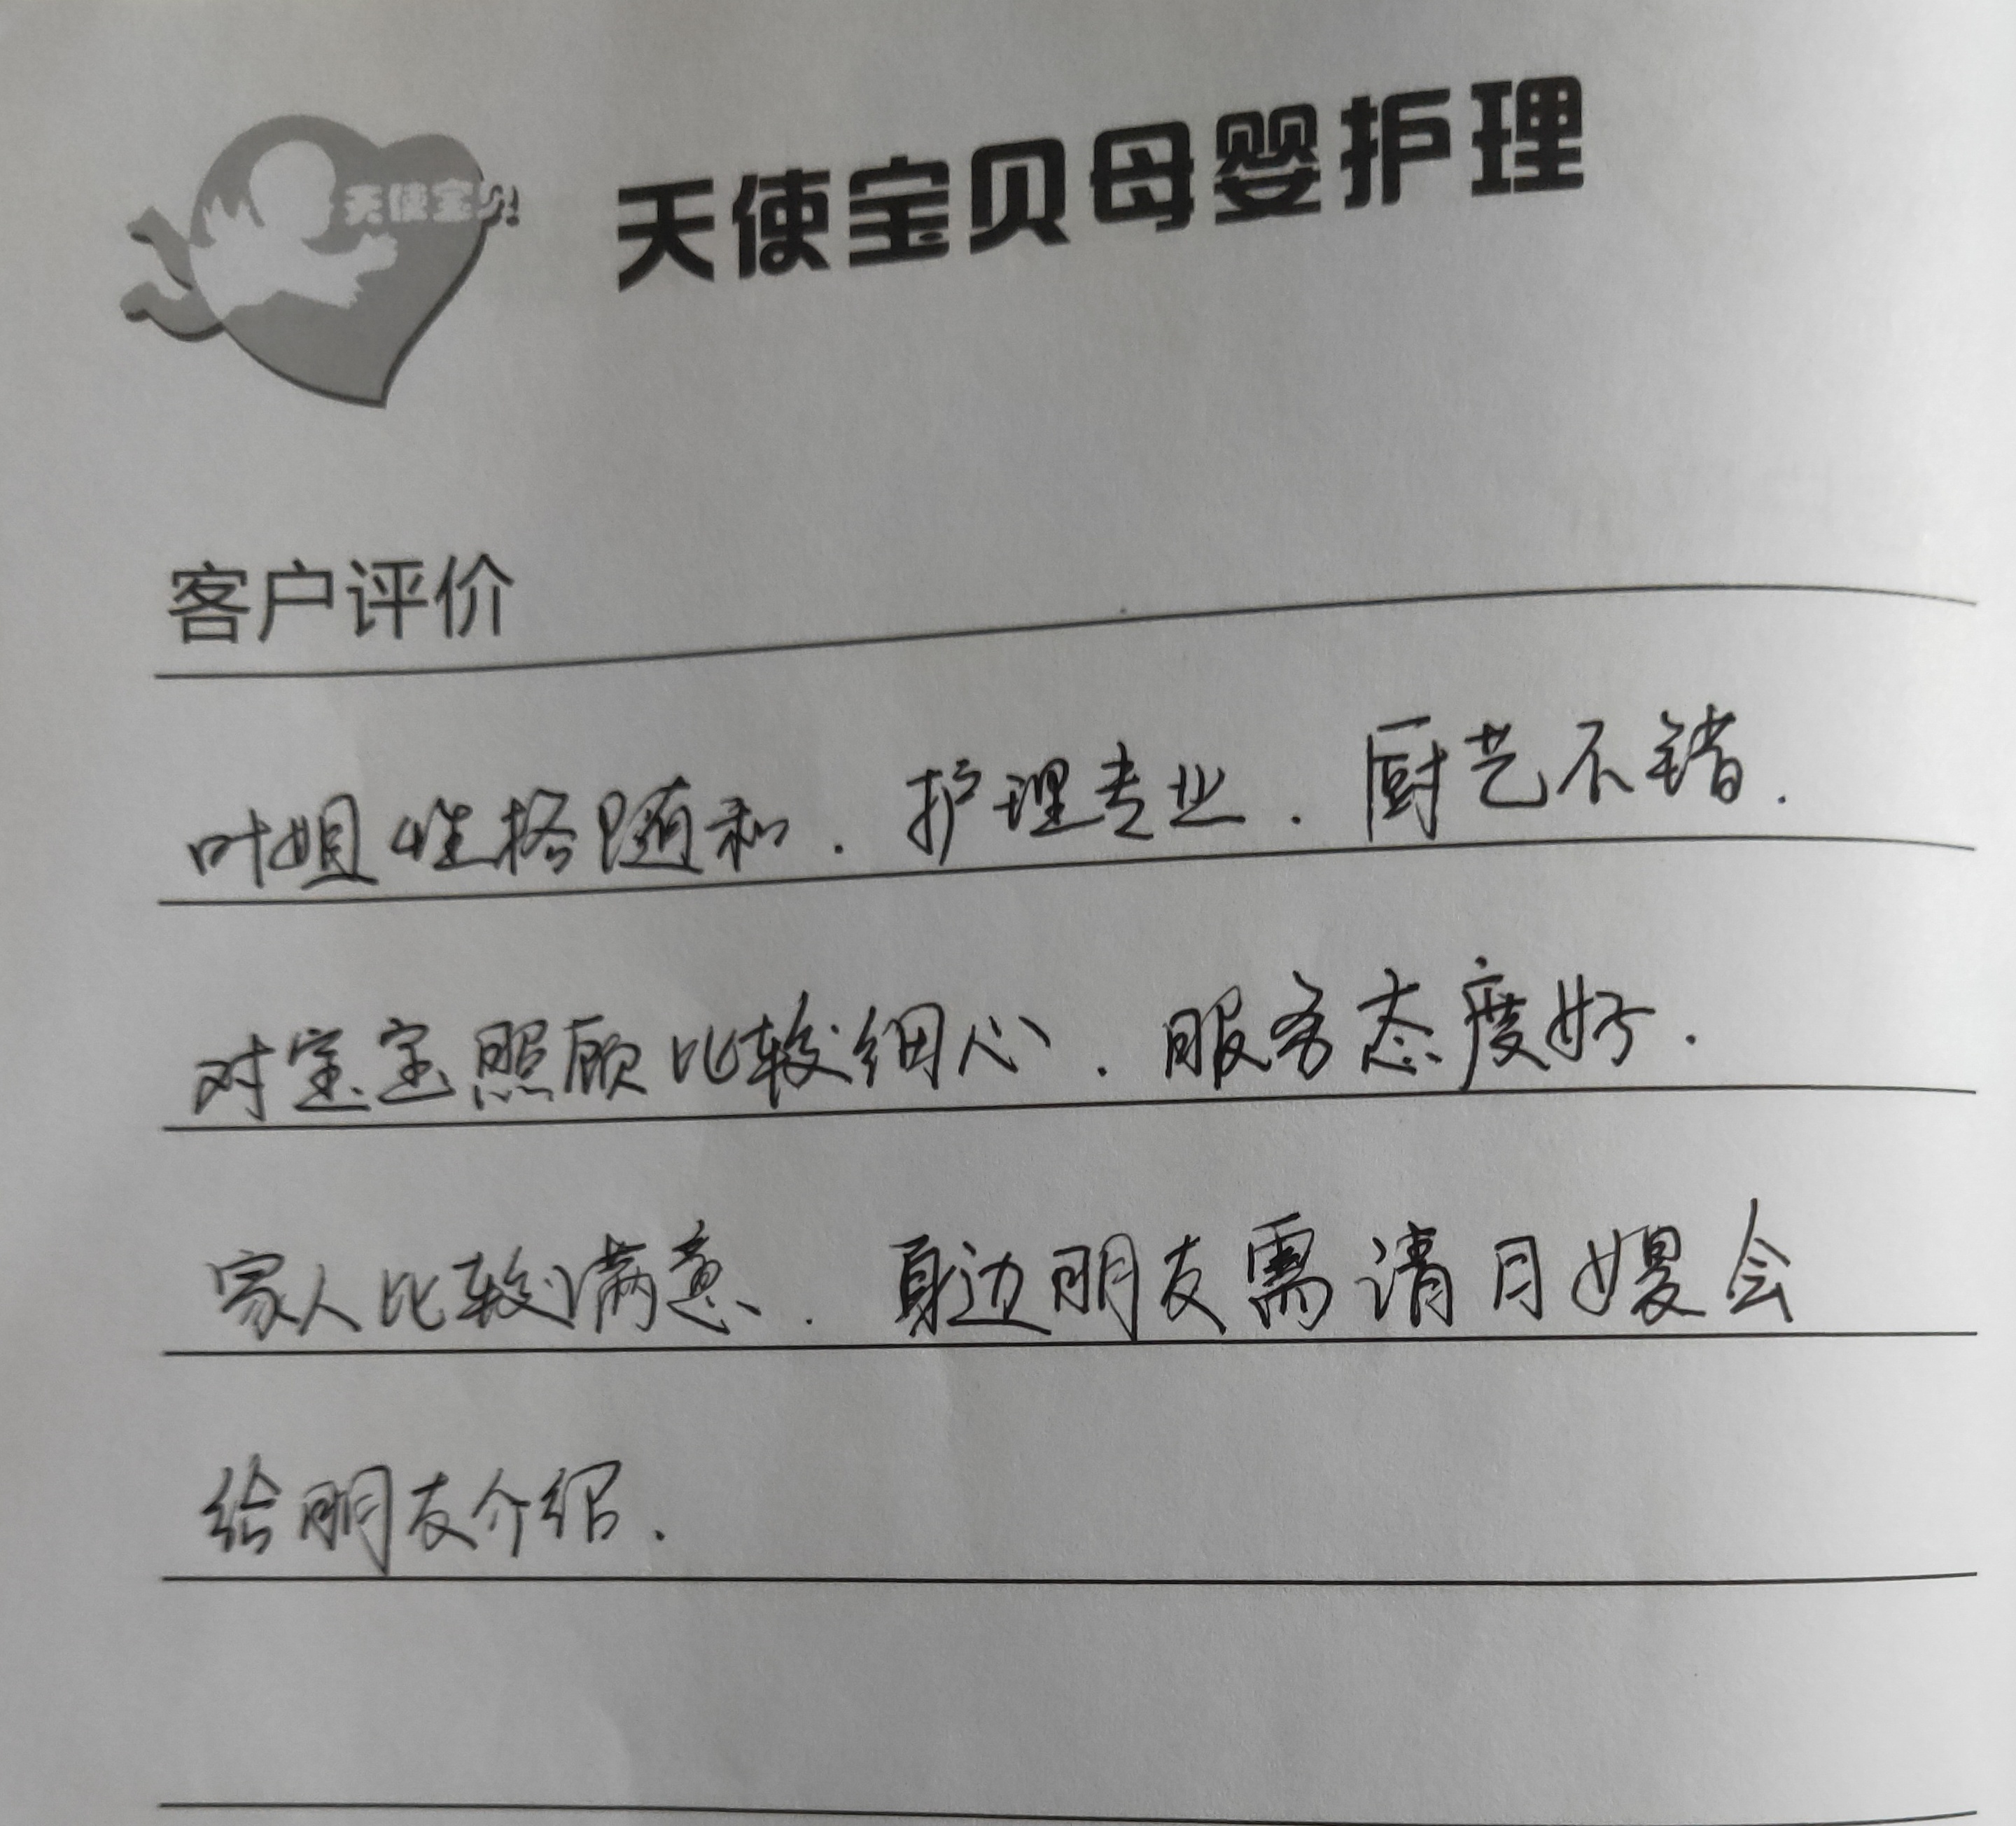 天使宝贝
天使宝贝母婴护理
客户评价
叶姐性格随和.护理专业.厨艺不错.
对宝宝照顾比较细心.服务态度好.
家人比较满意.身边朋友需请月嫂会
给朋友介绍.